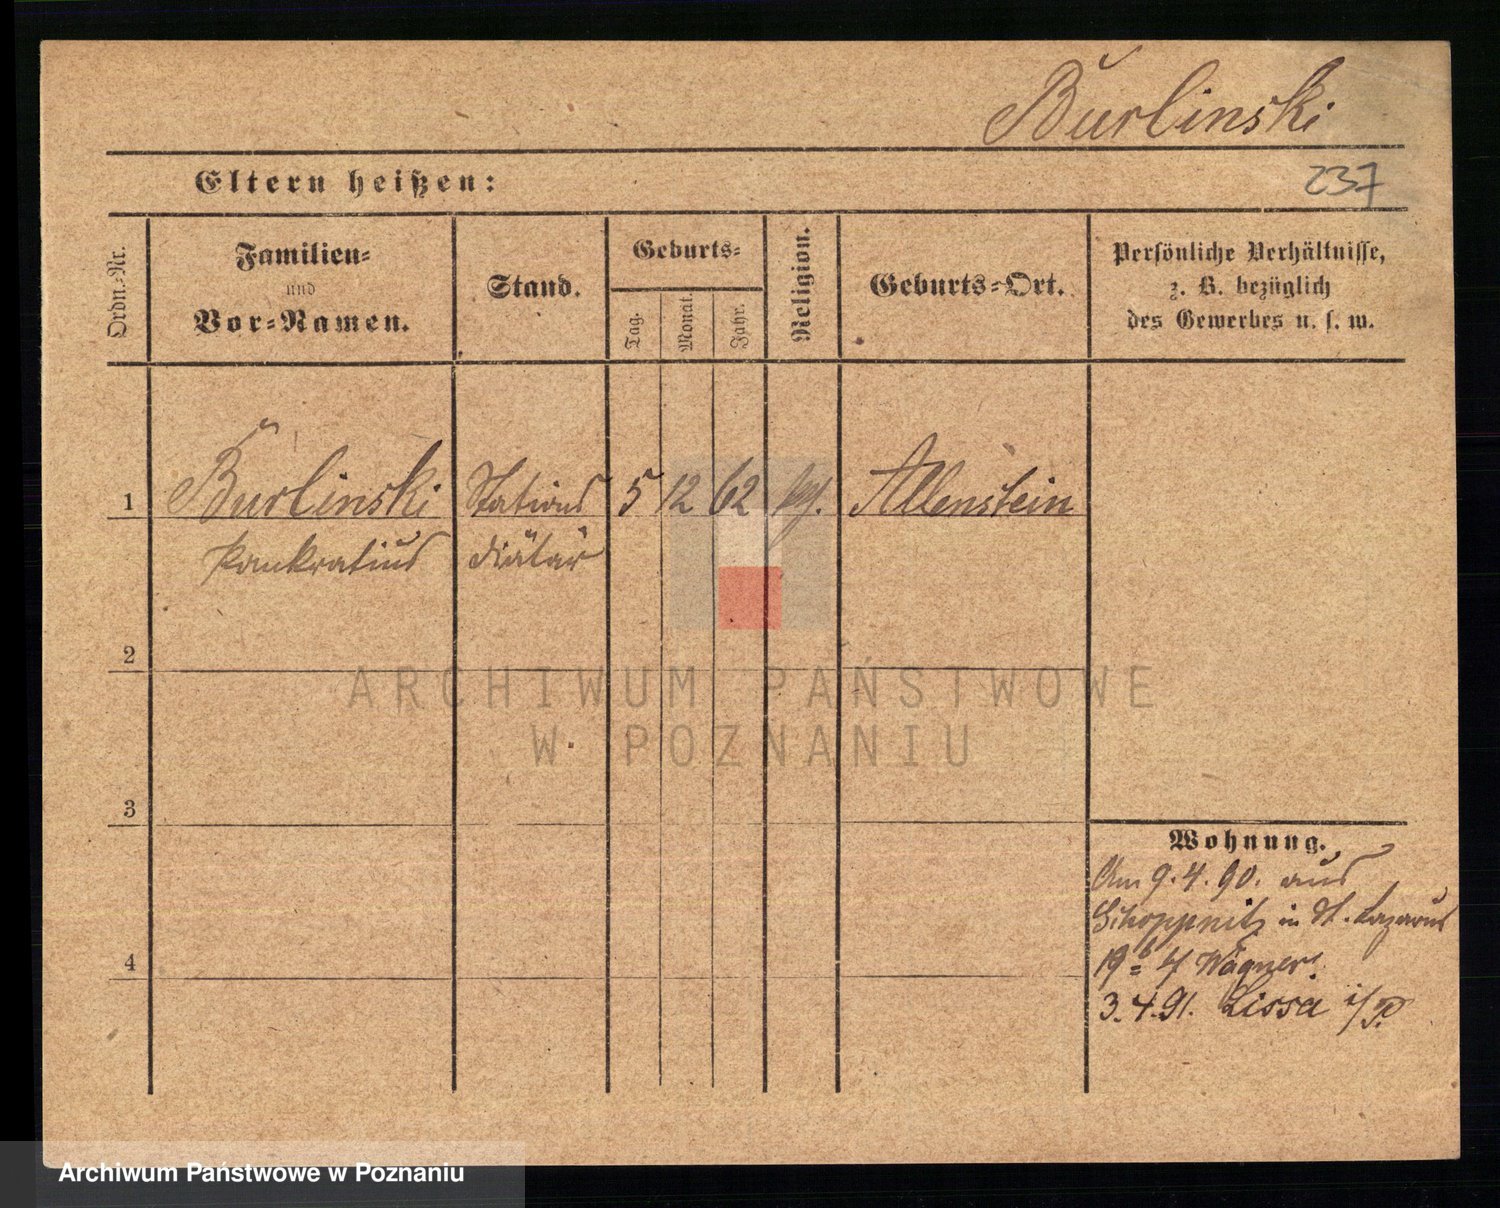 Burlinski
237
Eltern heißen:
Ordn.-Nr.
Familien-
und
Vor-Namen.
Stand.
Geburts-
Tag.
Monat.
Jahr.
Religion.
Geburts-Ort.
Persönliche Verhältnisse,
z. B. bezüglich
des Gewerbes u. s. w.
1 Burlinski Stations 5 12 62 Allenstein
Pankratius diätar
2
3
4
Wohnung.
Am 9.4.90. aus
Schoppnitz in St. Lazarus
19 b/4 Wagner.
3.4.91. Lissa i/P.
ARCHIWUM PAŃSTWOWE
W POZNANIU
Archiwum Państwowe w Poznaniu